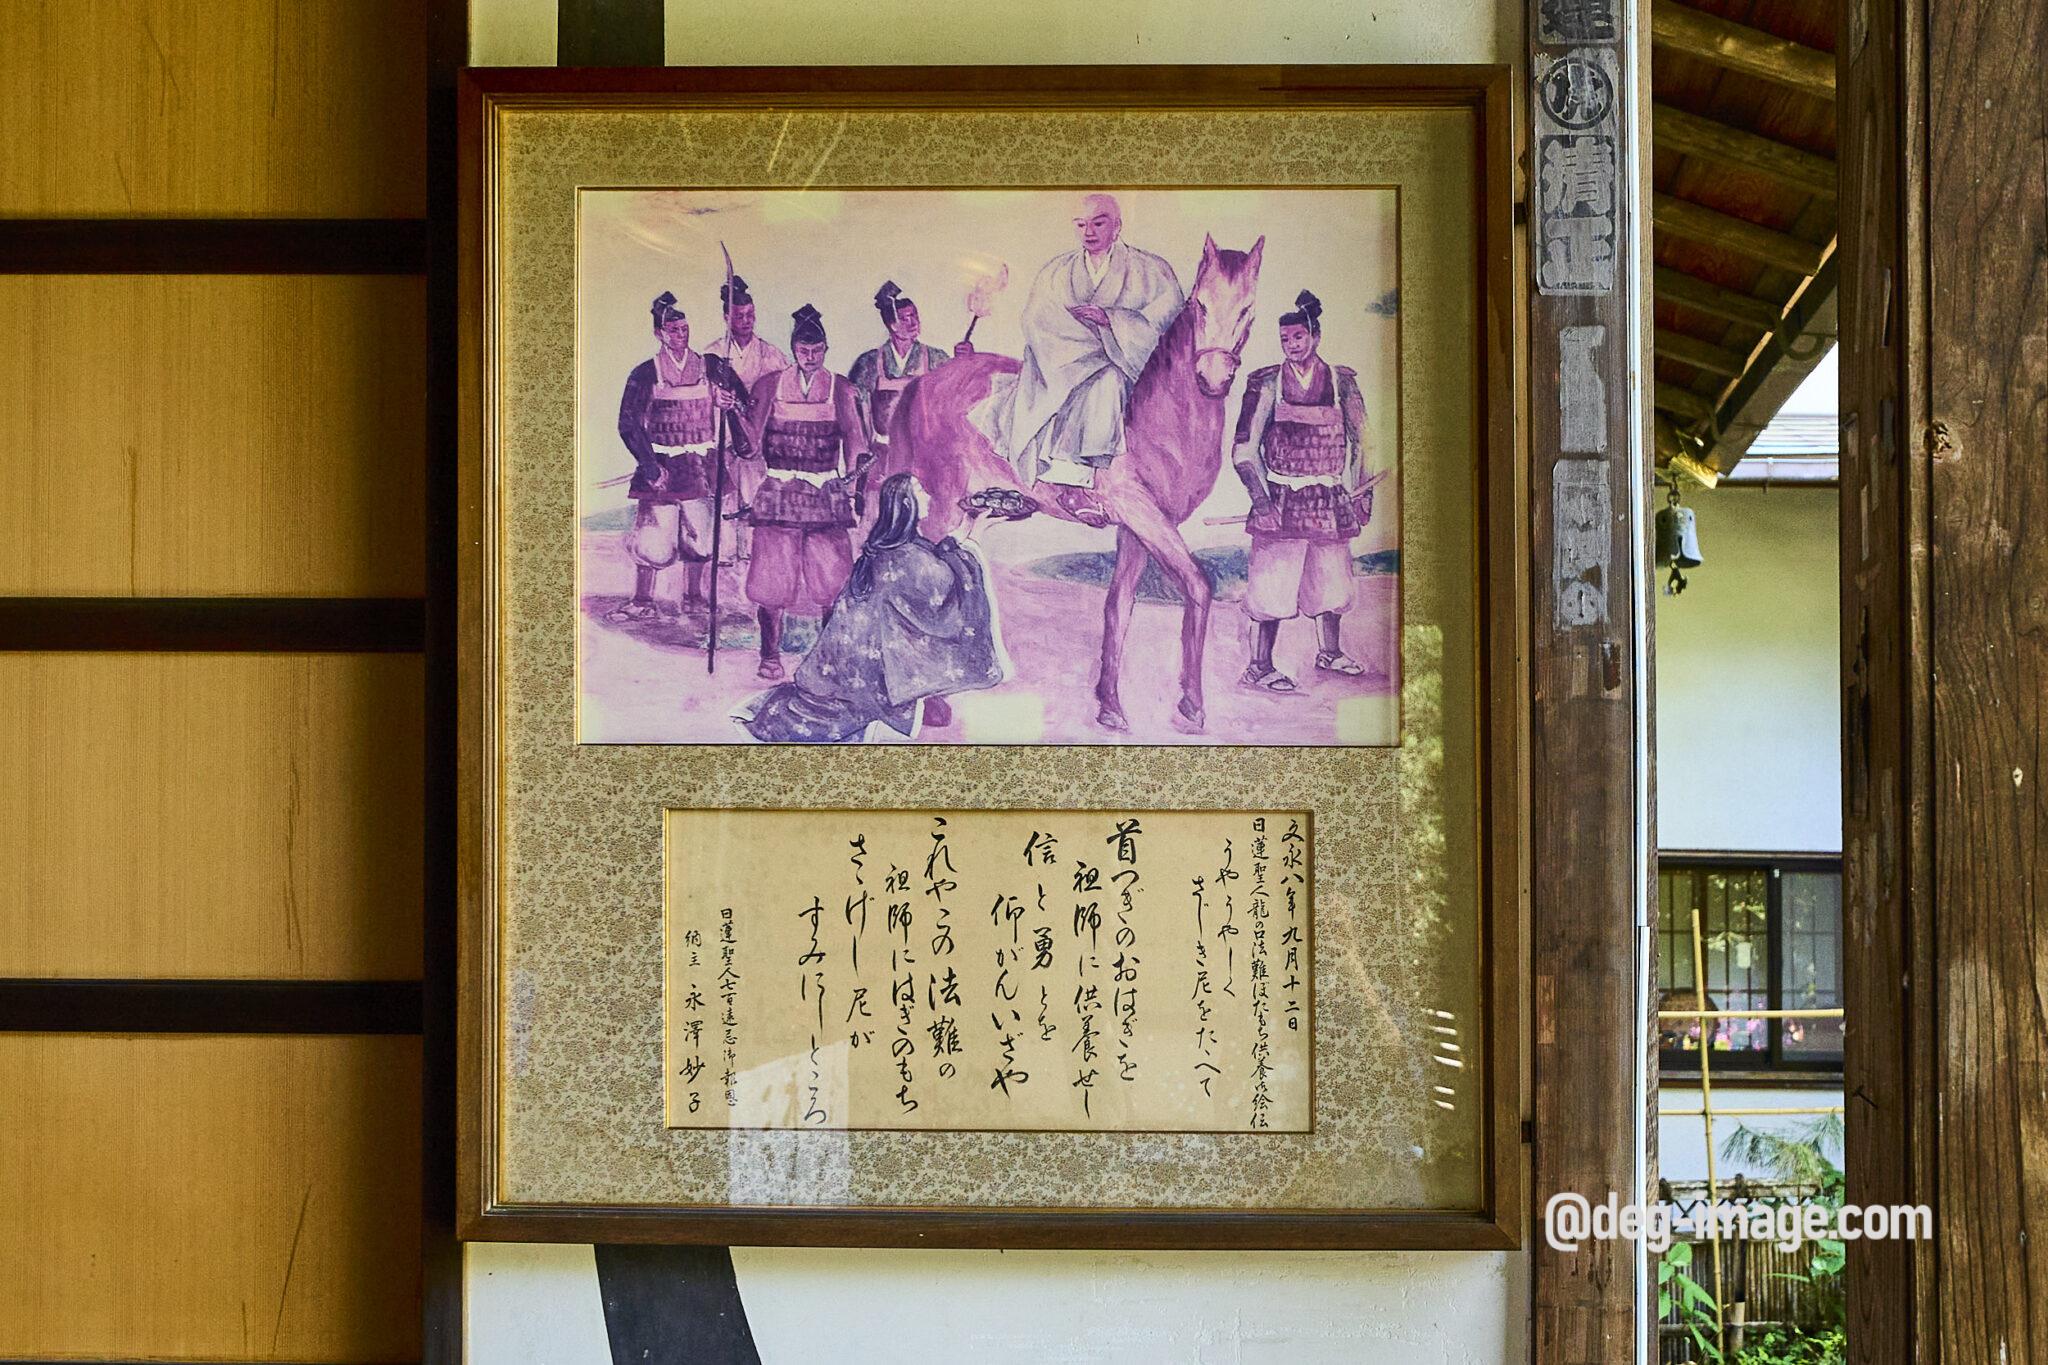 文永八年九月十二日
日蓮聖人龍の口法難ぼたもち供養御絵伝
うやうやしく
さじき尼をたゝへて
首つぎのおはぎを
祖師に供養せし
信と勇とを
仰がんいざや
これやこの法難の
祖師にはぎのもち
さゝげし尼が
すみにしところ
日蓮聖人七百遠忌御報恩
納主 永澤妙子
清正
@deg-image.com